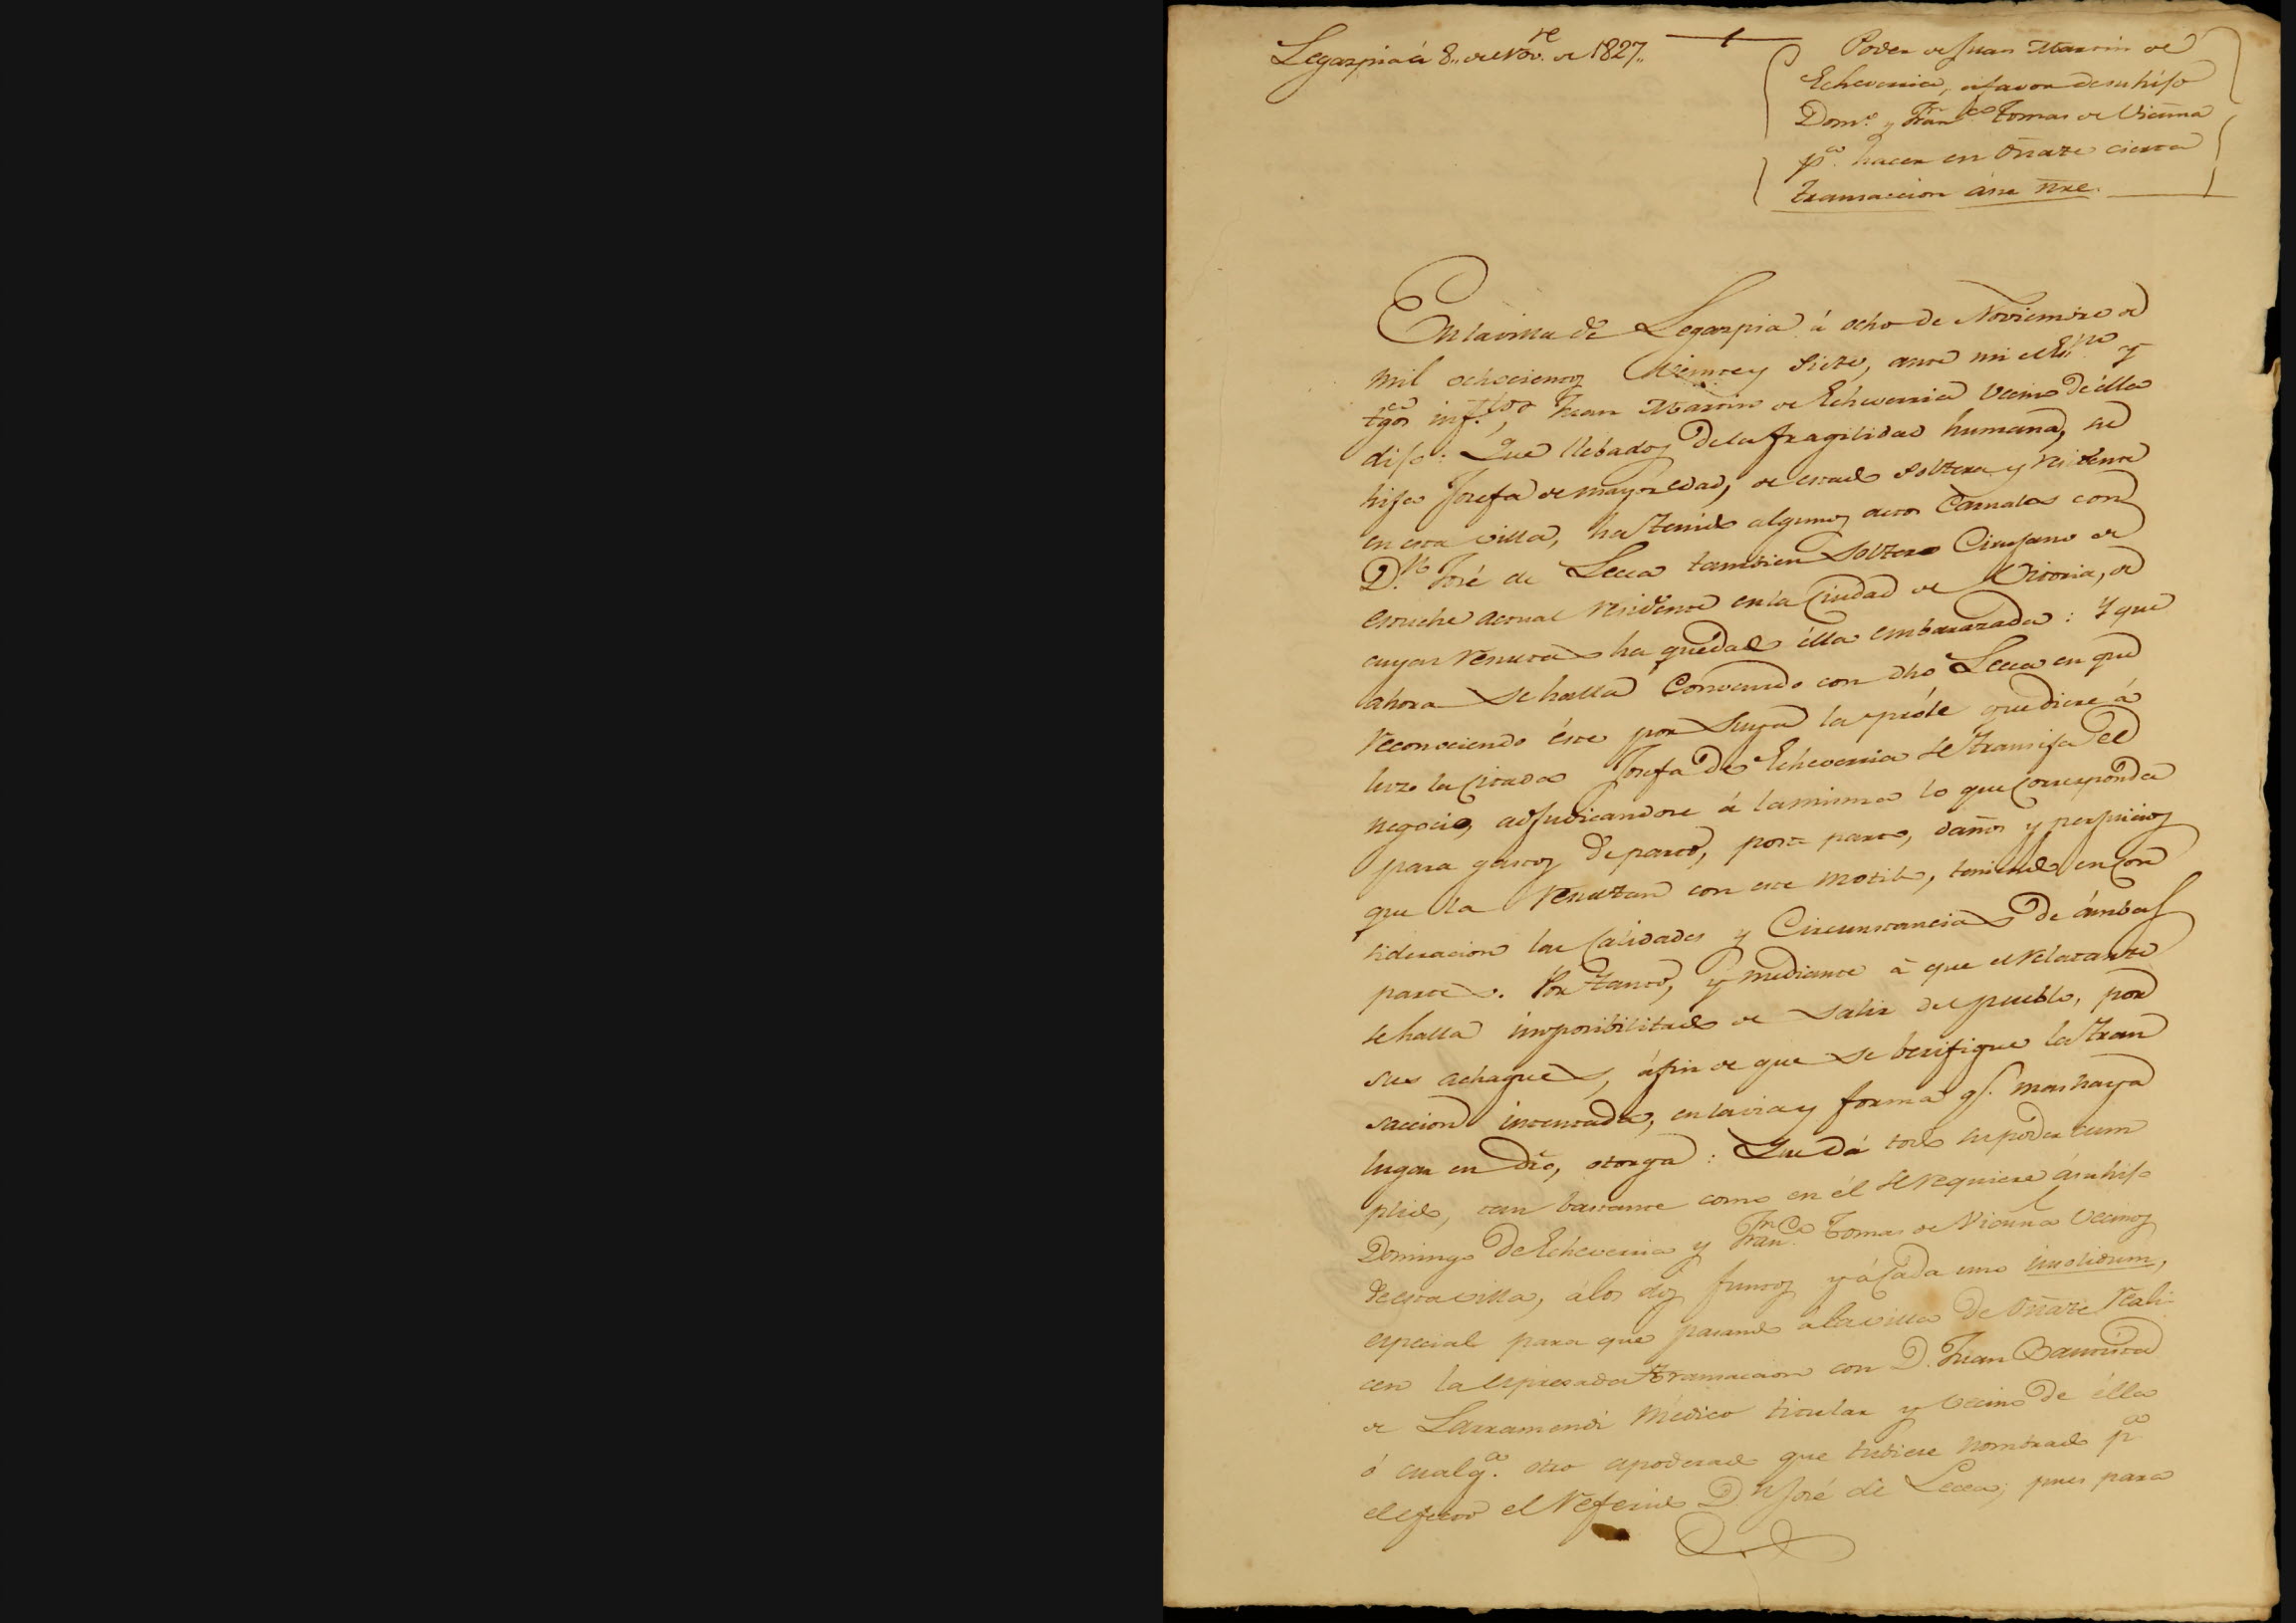 Legazpia á 8,, de Nov.re de 1827,,
Poder de Juan Martin de
Echeverria, á favor de su hijo
Dom.o y Fran.co Tomas de Vicuña
p.a hacer en Oñate cierta
transaccion á su nre.
En la villa de Legazpia á ocho de Noviembre de
mil ochocientos Veinte y siete, ante mi el Es.no y
tgos inf.tos, Juan Martin de Echeverria Vecino de élla
dijo: Que llebados de la fragilidad humana, su
hija Josefa de mayor edad, de estado soltera y residente
en esta villa, ha tenido algunos actos Carnales con
D.n José de Lecea tambien soltero Cirujano de
estuche actual residente en la Ciudad de Vitoria, de
cuyas resultas ha quedado élla embarazada: Y que
ahora se halla Convenido con dho Lecea en que
reconociendo éste por suya la próle que diere á
luz la Citada Josefa de Echeverria se transija el
negocio, adjudicandose á la misma lo que corresponda
para gastos de parto, post parto, daños y perjuicios
que la resultan con este motibo, teniendo en con
sideracion las Calidades y Circunstancias de ámbas
partes. Por tanto, y mediante á que el relatante
se halla imposibilitado de salir del pueblo, por
sus achaques, áfin de que se berifique la tran
saccion intentada, en la via y forma q.e mas haya
lugar en dro, otorga: Que dá todo su poder cum
plido, tan bastante como en él se requiere á su hijo
Domingo de Echeverria y Fran.co Tomas de Vicuña Vecinos
de esta villa, á los dos juntos y á Cada uno insolidum,
especial para que pasando a la villa de Oñate reali-
cen la espresada transaccion con D. Juan Bautista
de Larramendi Médico titular y vecino de élla
ó cualq.a otro apoderado que tubiere nombrado p.a
el efecto el referido D.n José de Lecea; pues para